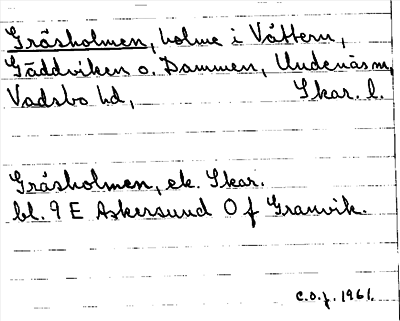 Gräsholmen, holme i Vättern,
Gäddviken o. Dammen, Undenäs m,
Vadsbo hd, Skar. l.
Gräsholmen, ek. Skar.
bl. 9 E Askersund O f Granvik.
C.O.J. 1961.